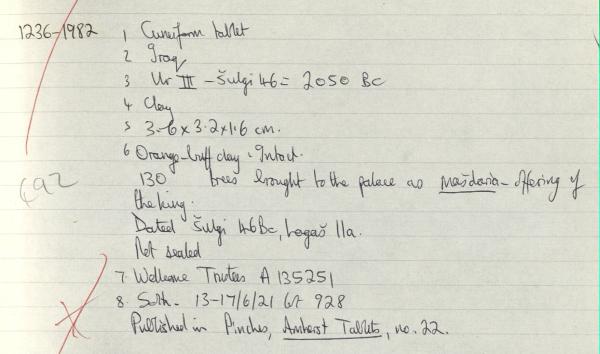 1236-1982 1 Cuneiform tablet
2 Iraq
3 Ur III - Šulgi 46 = 2050 BC
4 Clay
5 3.6 x 3.2 x 1.6 cm.
6 Orange-buff clay. Intact.
130 trees brought to the palace as mašdaria-offering of
the king.
Dated Šulgi 46 BC, Lagaš IIa.
Not sealed
7. Wellcome Trustees A 135251
8. Soth. 13-17/6/21 lot 928
Published in Pinches, Amherst Tablets, no. 22.